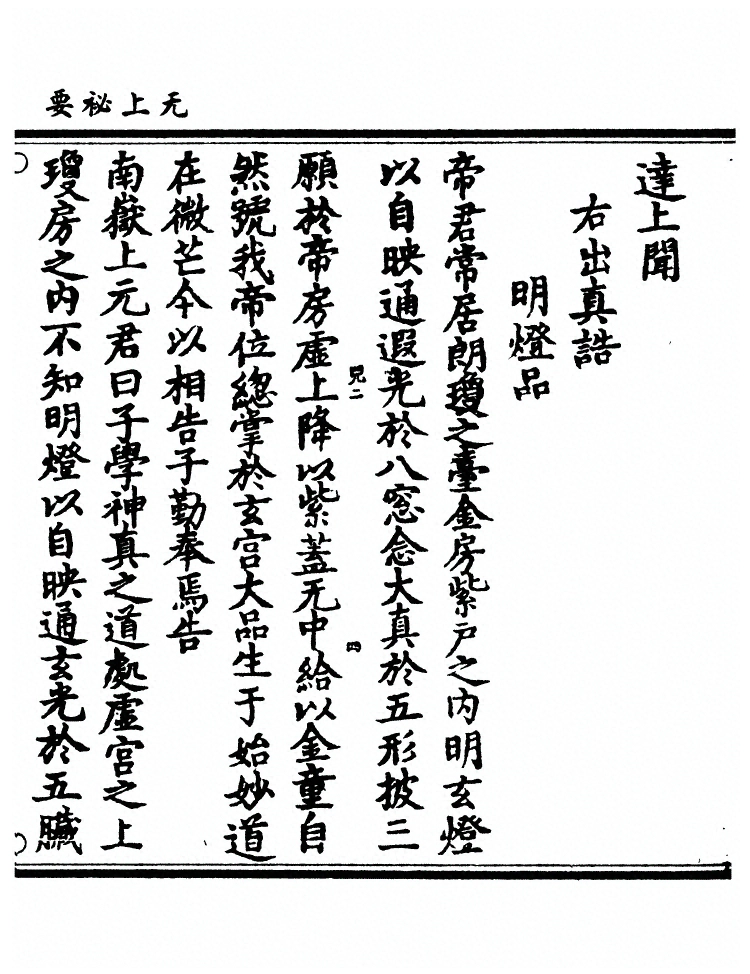 无上祕要
達上聞
右出真誥
明燈品
帝君常居朗瓊之臺金房紫戶之內明玄燈
以自映通遐光於八窓念大真於五形披三
願於帝房虛上降以紫蓋无中給以金童自
然號我帝位總掌於玄宮大品生于始妙道
在微芒今以相告子勤奉焉告
南嶽上元君曰子學神真之道處虛宮之上
瓊房之內不知明燈以自映通玄光於五臟
兄二
四